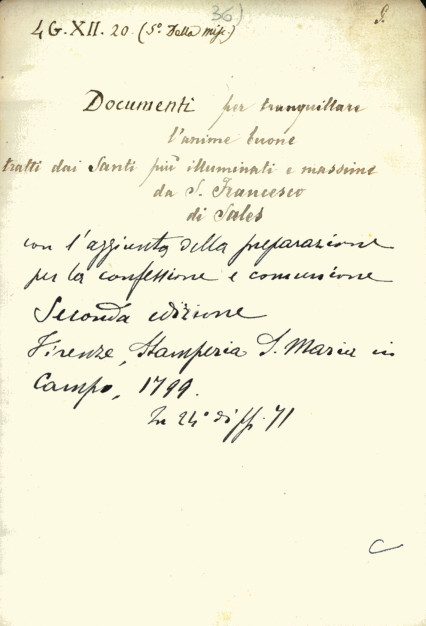 36)
4 G. XII. 20 (5° Della misc.)
Documenti per tranquillare
l'anime buone
tratti dai Santi più illuminati e massime
da S. Francesco
di Sales
con l'aggiunta della preparazione
per la confessione e comunione
Seconda edizione
Firenze, Stamperia S. Maria in
Campo, 1799.
In 24° di ff. 71
C